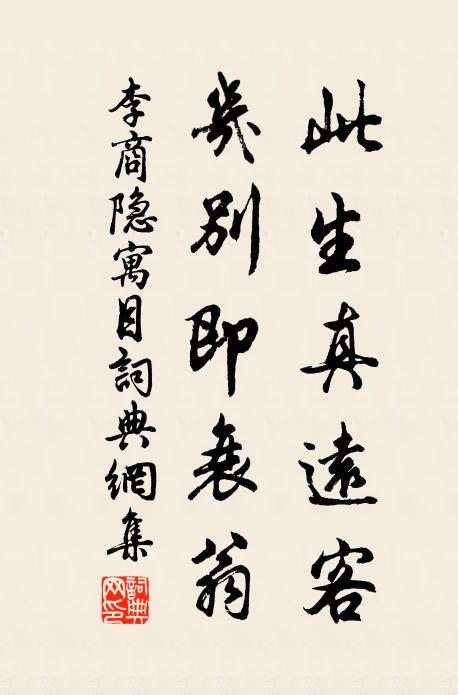 此生真遠客
幾別即衰翁
李商隐寓目詞典網集
詞典网印